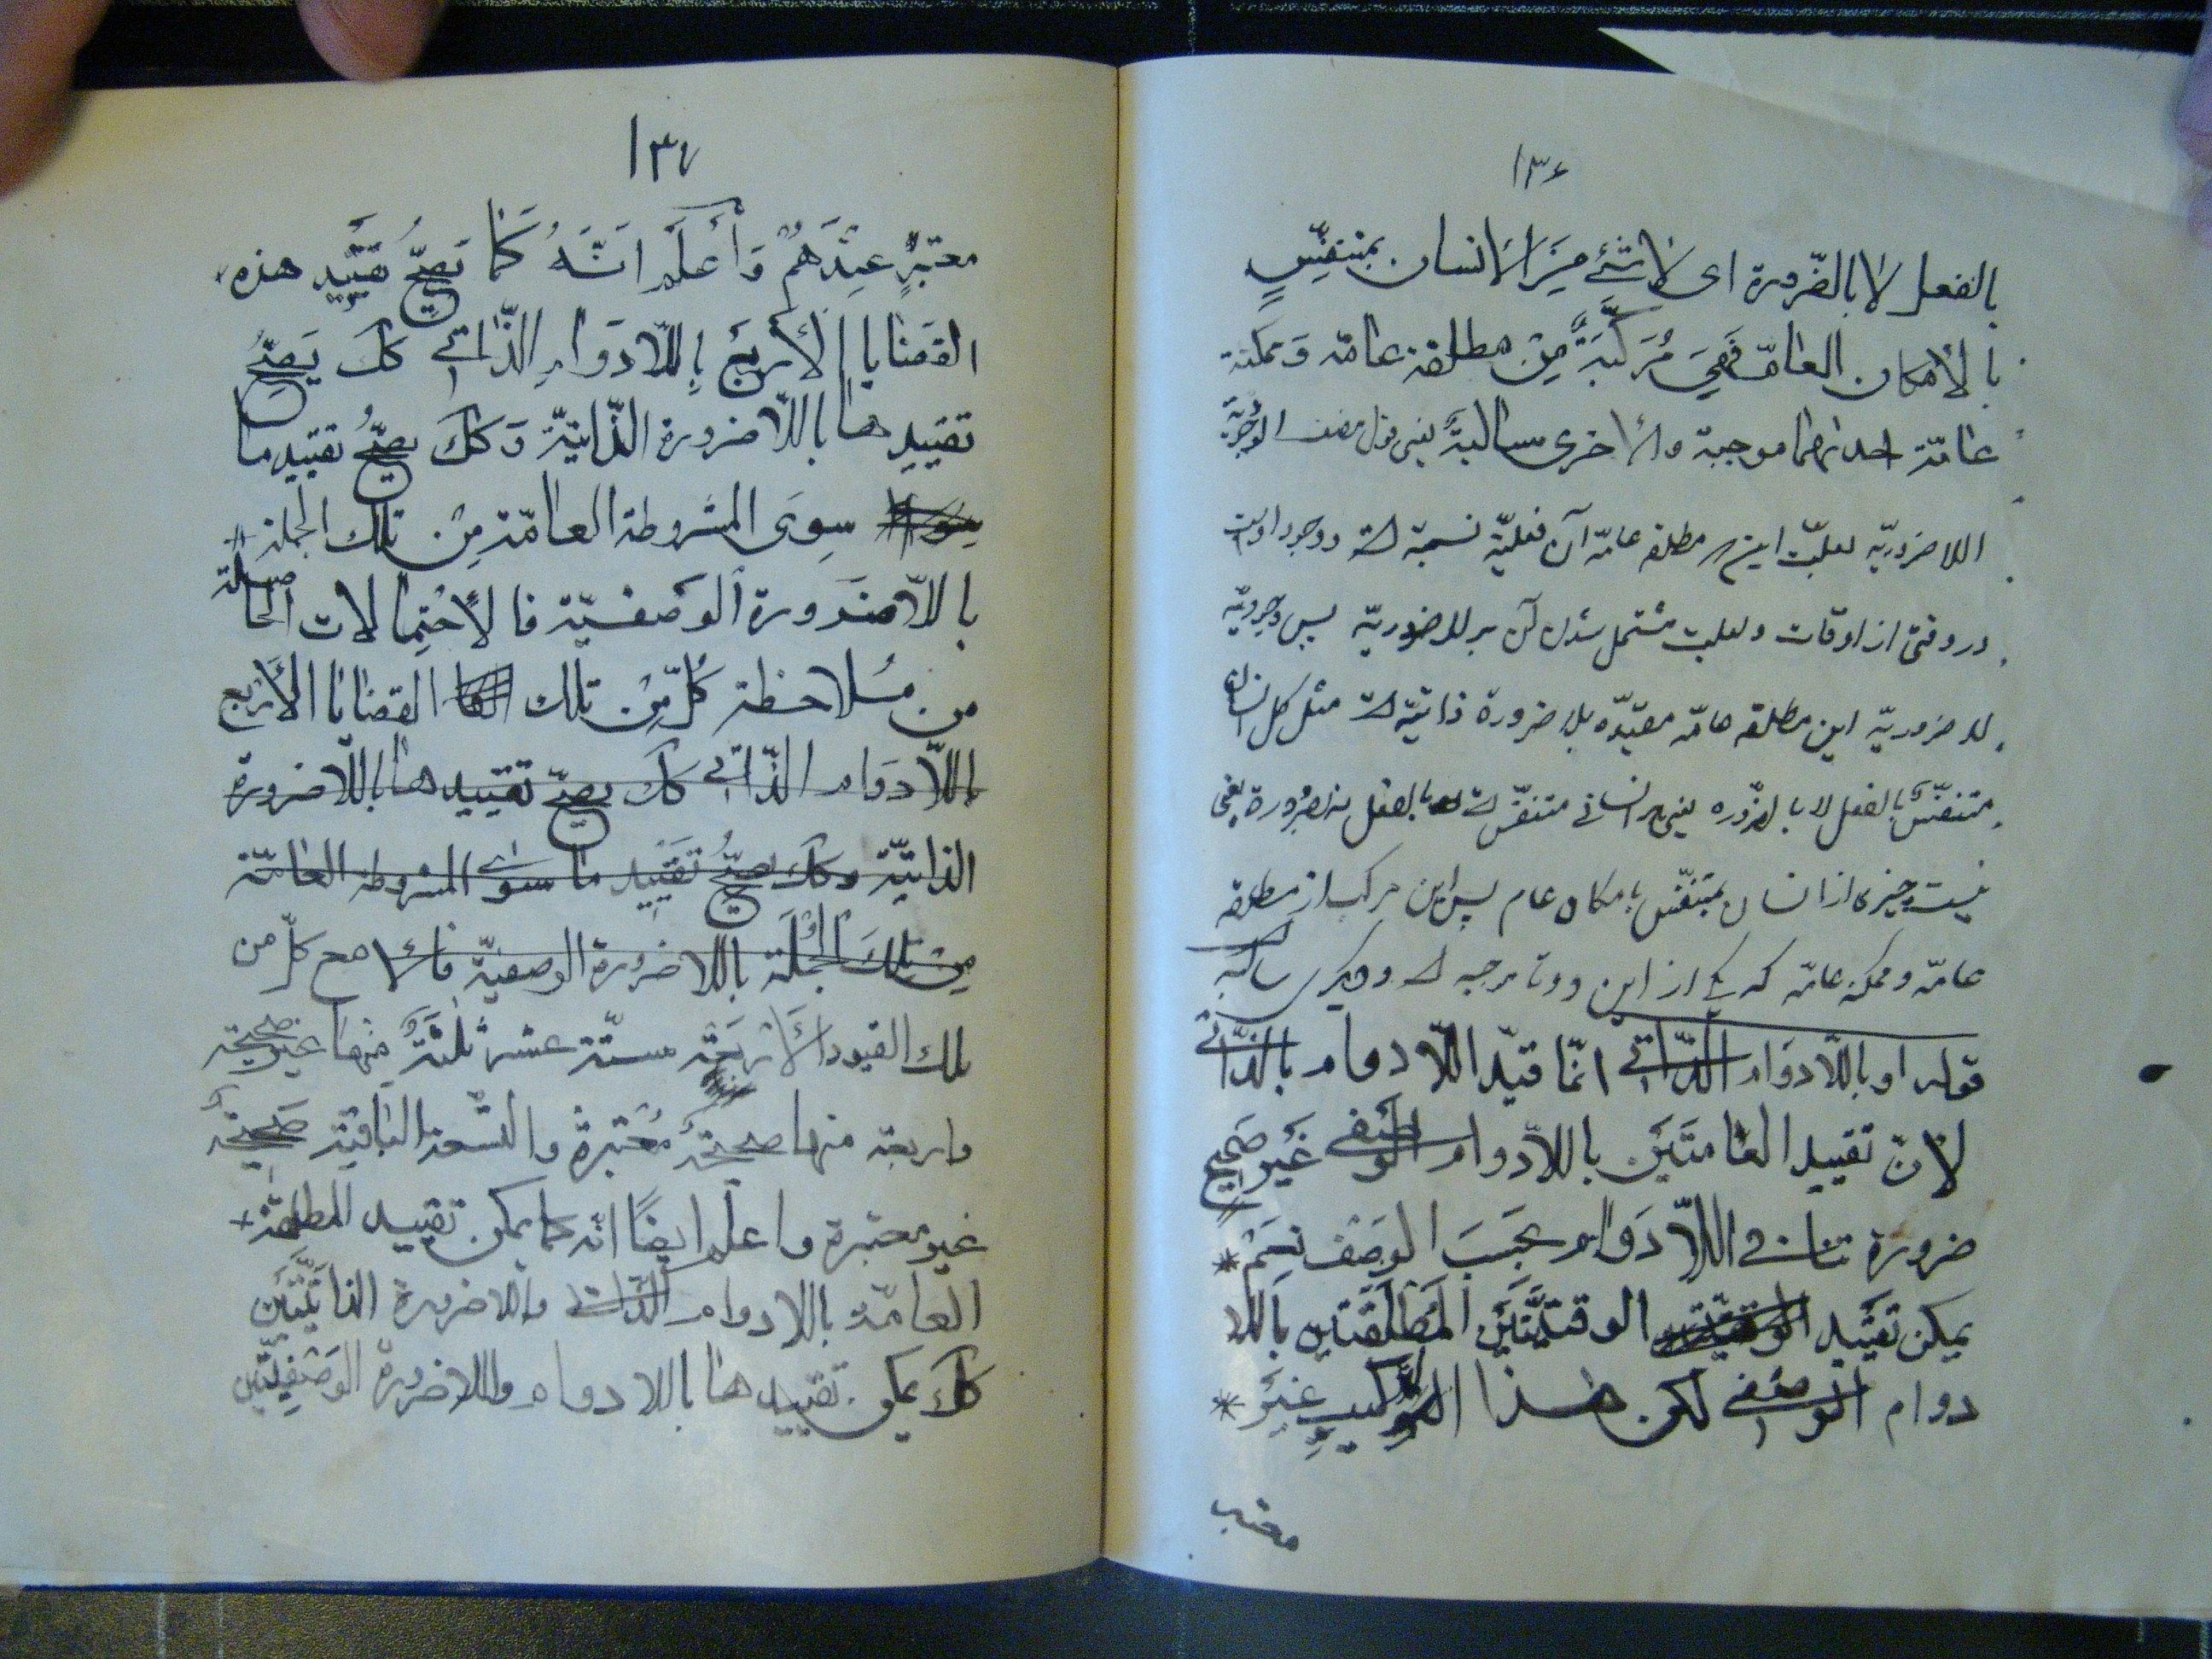 ١٣٦
بالفعل لا بالضّرورة اى لا شئ مِنَ الانسان بمتنفّسٍ
بالامكان العامّ فَهِىَ مُرَكَّبَةٌ مِنْ مطلقة عامّة وَ ممكنة
عامّة احدٰيهما موجبة والاخرى سالبةٌ يعنى قول مصنف الوجوديّة
اللاضروريّه مطلقه عامّه آن فعليّة نسبة در وجود اوست
در وقتى از اوقات و مشتمل شدن آن بر لاضروريّه پس وجوديّه
لاضروريّه اين مطلقه عامّه مقيّده بلاضرورة ذاتيّه مثل كل انسان
متنفّس بالفعل لا بالضّروره يعنى هر انسانى متنفّس بالفعل نه بضرورة يعنى
نيست چيزى از انسان بمتنفّس بامكان عام پس اين مركب از مطلقه
عامّه و ممكنه عامّه كه يكى از اين دوتا موجبه و ديگرى سالبه
قوله او باللّادوَام الذّاتى انمّا قيّد اللّادوام بالذّاتى
لأنّ تقييد العامتَين باللاّدوام الوصفى غَير صَحيح
ضرورة تنافى اللاّدَوام بحَسَبَ الوَصْف نعَمْ *
يمكن تقييد الوقتيّتَيَن المطلقَتين باللا
دوام الوصفى لكن هذا التركيب غيَر *
معتبر
١٣٧
معتبرٍ عِنْدَهُمْ وَ اَعْلَمْ اَنَّهُ كَما يَصِحُّ تقييد هذه
القضايا الأربَع بِاللّادوَامِ الذّاتى كك يَصِحُّ
تقييدها باللّاضرورة الذّاتيّة وَ كك يصحُّ تقييد ما
سِوَى المشروطة العامّة مِنْ تلك الجملة
باللاّضَرورة الوَصفيّة فالاحْتِمالات الحاصلة
من مُلاحظة كُلٍّ مِنْ تلك القضايا الأربع
باللّادوَام الذّاتى كك يصحّ تقييدها باللّاضرورة
الذاتيّة وكك يصحُّ تَقييد ما سوى المشروطة العامّة
مِنْ تلكَ الجُملَة باللاضرورة الوصفيّة مع كلّ من
تلك القيود الأربَعَة ستّة عشر ثلثةٌ منها غير صحيحة
واربعة منها صحيحةٌ مُعْتبرةٌ والتّسعة الباقية صَحيحةٌ
غير معتبرة واعلم ايضًا انّه كما يمكن تقييد المطلقة
العامّة باللادوام الذّاتى واللاضرورة الذاتيّتَين
كك يمكن تقييدها باللادوام واللاضرورة الوَصْفِيّتَين